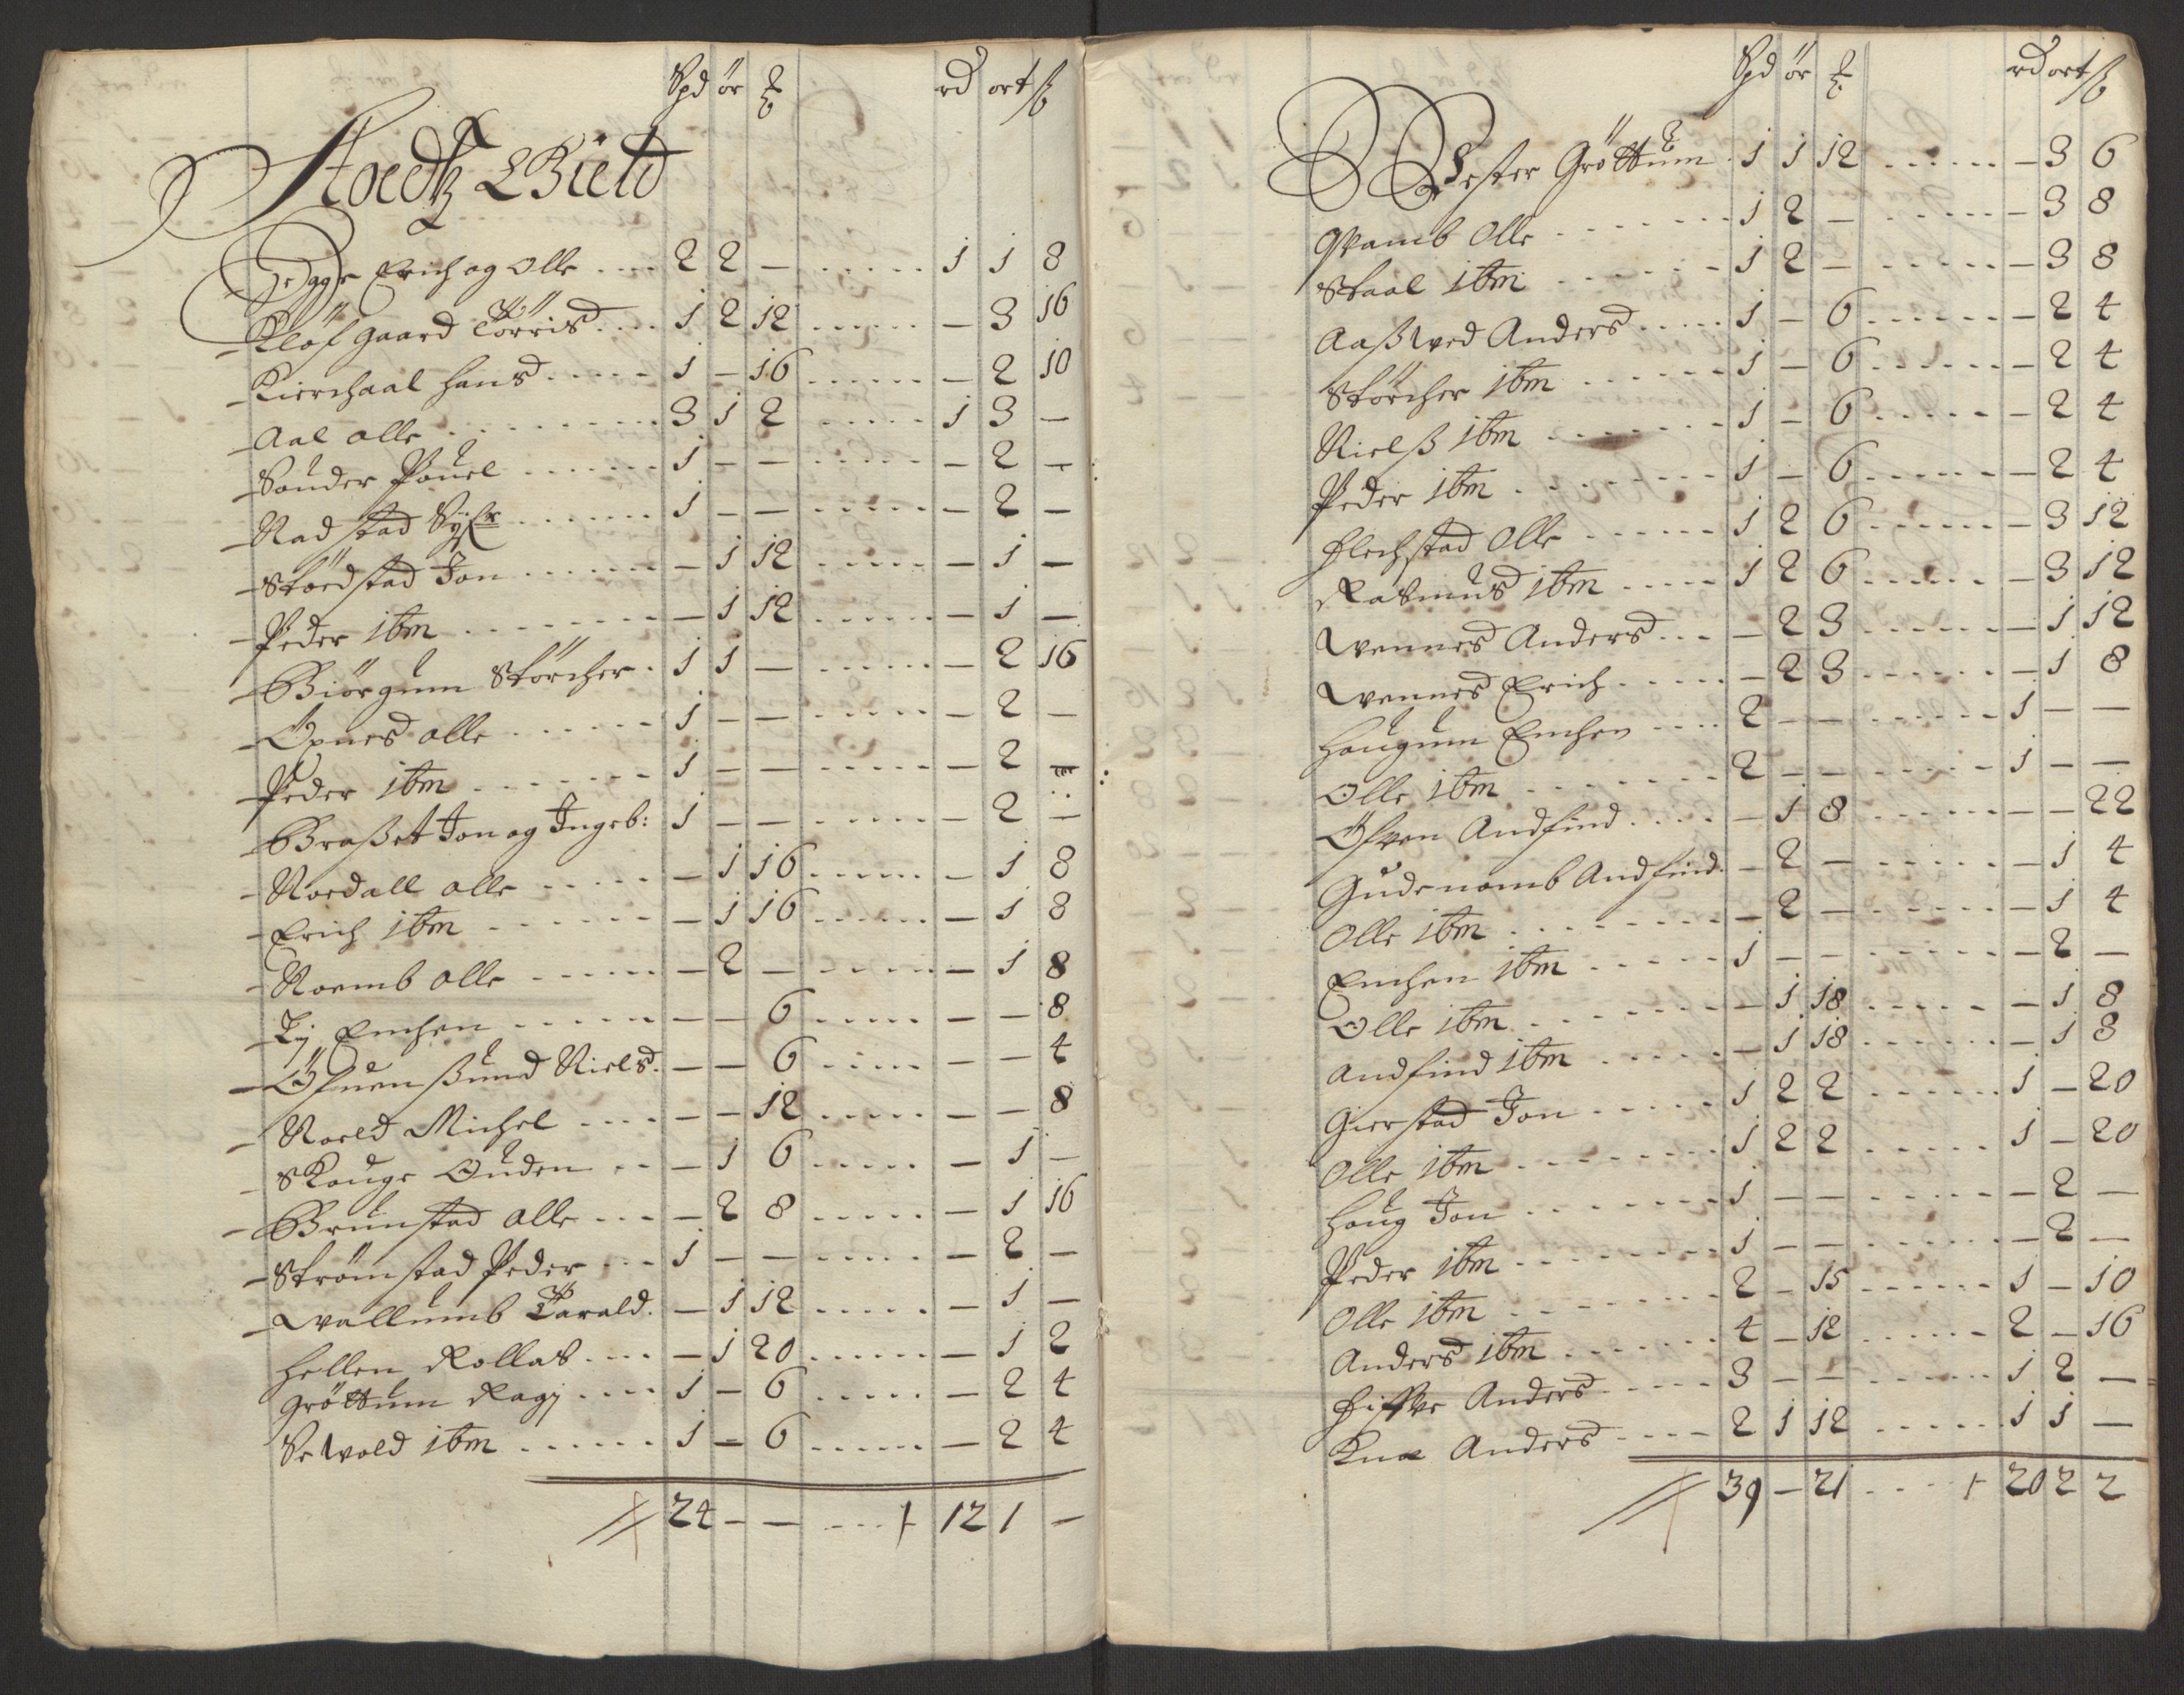 Spd ör ₰ rd ort ß
Stoedtz Gield
Hegge Erich og Olle .... 2 2 — ...... 1 1 8
Klöfgaard Törris .... 1 2 12 ...... — 3 16
Kierchaal Hans ..... 1 — 16 ...... — 2 10
Aal Olle ......... 3 1 2 ..... 1 3 —
Sönder Pouel ....... 1 — — ...... — 2 —
Rad stad Syfr ....... 1 — — ...... — 2 —
Stordstad Jon ...... — 1 12 ..... — 1 —
Peder ibm ........ — 1 12 ...... — 1 —
Biörgum Störcher . 1 1 — ...... — 2 16
Öpnes Olle ...... 1 — — ..... — 2 —
Peder ibm ....... 1 — — ..... — 2 —
Braßet Jon og Ingeb: 1 — — ..... — 2 —
Nordall Olle ..... — 1 16 ..... — 1 8
Erich ibm ...... — 1 16 ..... — 1 8
Noemb Olle ..... — 2 — ..... — 1 8
Lij Emhen ...... — — 6 ..... — — 8
Öfuensund Niels . — — 6 ..... — — 4
Noeld Michel .... — — 12 ..... — — 8
Skouge Ouden ... — 1 6 ..... — 1 —
Brunstad Olle ... — 2 8 ..... — 1 16
Strömstad Peder ... 1 — — ..... — 2 —
Wallumb Tarald . — 1 12 ..... — 1 —
Hellen Rollas .... — 1 20 ...... — 1 2
Gröttum Ragj .... 1 — 6 ..... — 2 4
Sewold ibm ...... 1 — 6 ...... — 2 4
// 24 — — .... + 12 1 —
Spd ör ₰ rd ort ß
Vester Gröttum . 1 1 12 ...... — 3 6
Qvamb Olle ....... 1 2 — ...... — 3 8
Staal ibm ...... 1 2 — ...... — 3 8
Aaßwed Anders ..... 1 — 6 ...... — 2 4
Störcher ibm ...... 1 — 6 ...... — 2 4
Nielß ibm ....... 1 — 6 ..... — 2 4
Peder ibm ........ 1 — 6 ..... — 2 4
Flechstad Olle ..... 1 2 6 ...... — 3 12
Rasmus ibm .... 1 2 6 ...... — 3 12
Wennes Anders ... — 2 3 ...... — 1 12
Wennes Erich ..... — 2 3 ...... — 1 8
Hougum Emhen .... 2 — — ...... 1 — —
Olle ibm ....... 2 — — ...... 1 — —
Öfren Andfind .... — 1 8 ...... — — 22
Gudenomb Andfind . — 2 — ...... — 1 4
Olle ibm ........ — 2 — ...... — 1 4
Emhen ibm ..... 1 — — ...... — 2 —
Olle ibm ........ — 1 18 ..... — 1 8
Andfind ibm ..... — 1 18 ...... — 1 8
Gierstad Jon ..... 1 2 2 ...... 1 — 20
Olle ibm ........ 1 2 2 ...... 1 — 20
Houg Jon ....... 1 — — ...... — 2 —
Peder ibm ....... 1 — — ...... — 2 —
Olle ibm ........ 2 — 15 ...... 1 — 10
Anders ibm ...... 4 — 12 ..... 2 — 16
Anders ..... 3 — — ...... 1 2 —
Knæ Anders .... 2 1 12 ..... 1 1 —
// 39 — 21 .... + 20 2 2